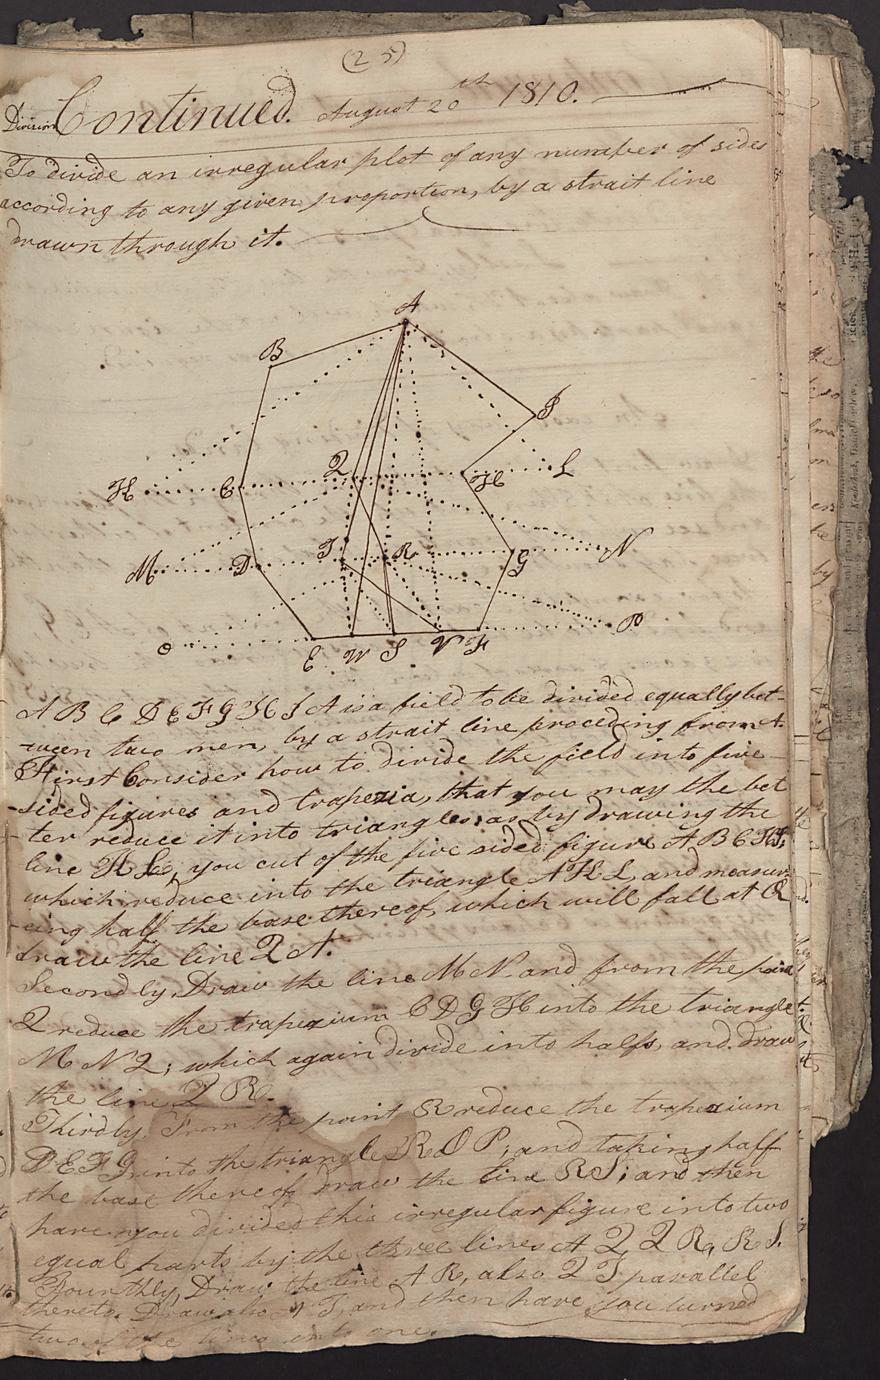 (25)
Division Continued. August 20th 1810.
To divide an irregular plot of any number of sides
according to any given proportion, by a strait line
drawn through it.
A
B
I
K C Q H L
M D T R G N
O E W S V F P
A B C D E F G H I A is a field to be divided equally bet-
-ween two men, by a strait line proceding from A.
First Consider how to divide the field into five
-sided figures and trapezia, that you may the bet
-ter reduce it into triangles: as by drawing the
line K L, you cut of the five sided figure A B C H I,
which reduce into the triangle A K L and measur
-ing half the base thereof, which will fall at Q
draw the line Q A.
Secondly, Draw the line M N and from the point
Q reduce the trapezium C D G H into the triangle
M N Q; which again divide into halfs, and draw
the line Q R.
Thirdly. From the point R reduce the trapezium
D E F G into the triangle R O P; and taking half
the base thereof, draw the line R S; and then
have you divided this irregular figure into two
equal parts by the three lines A Q, Q R, R S.
Fourthly, Draw the line A R, also Q T parallel
thereto. Draw also A T, and then have you turned
two of the lines into one.